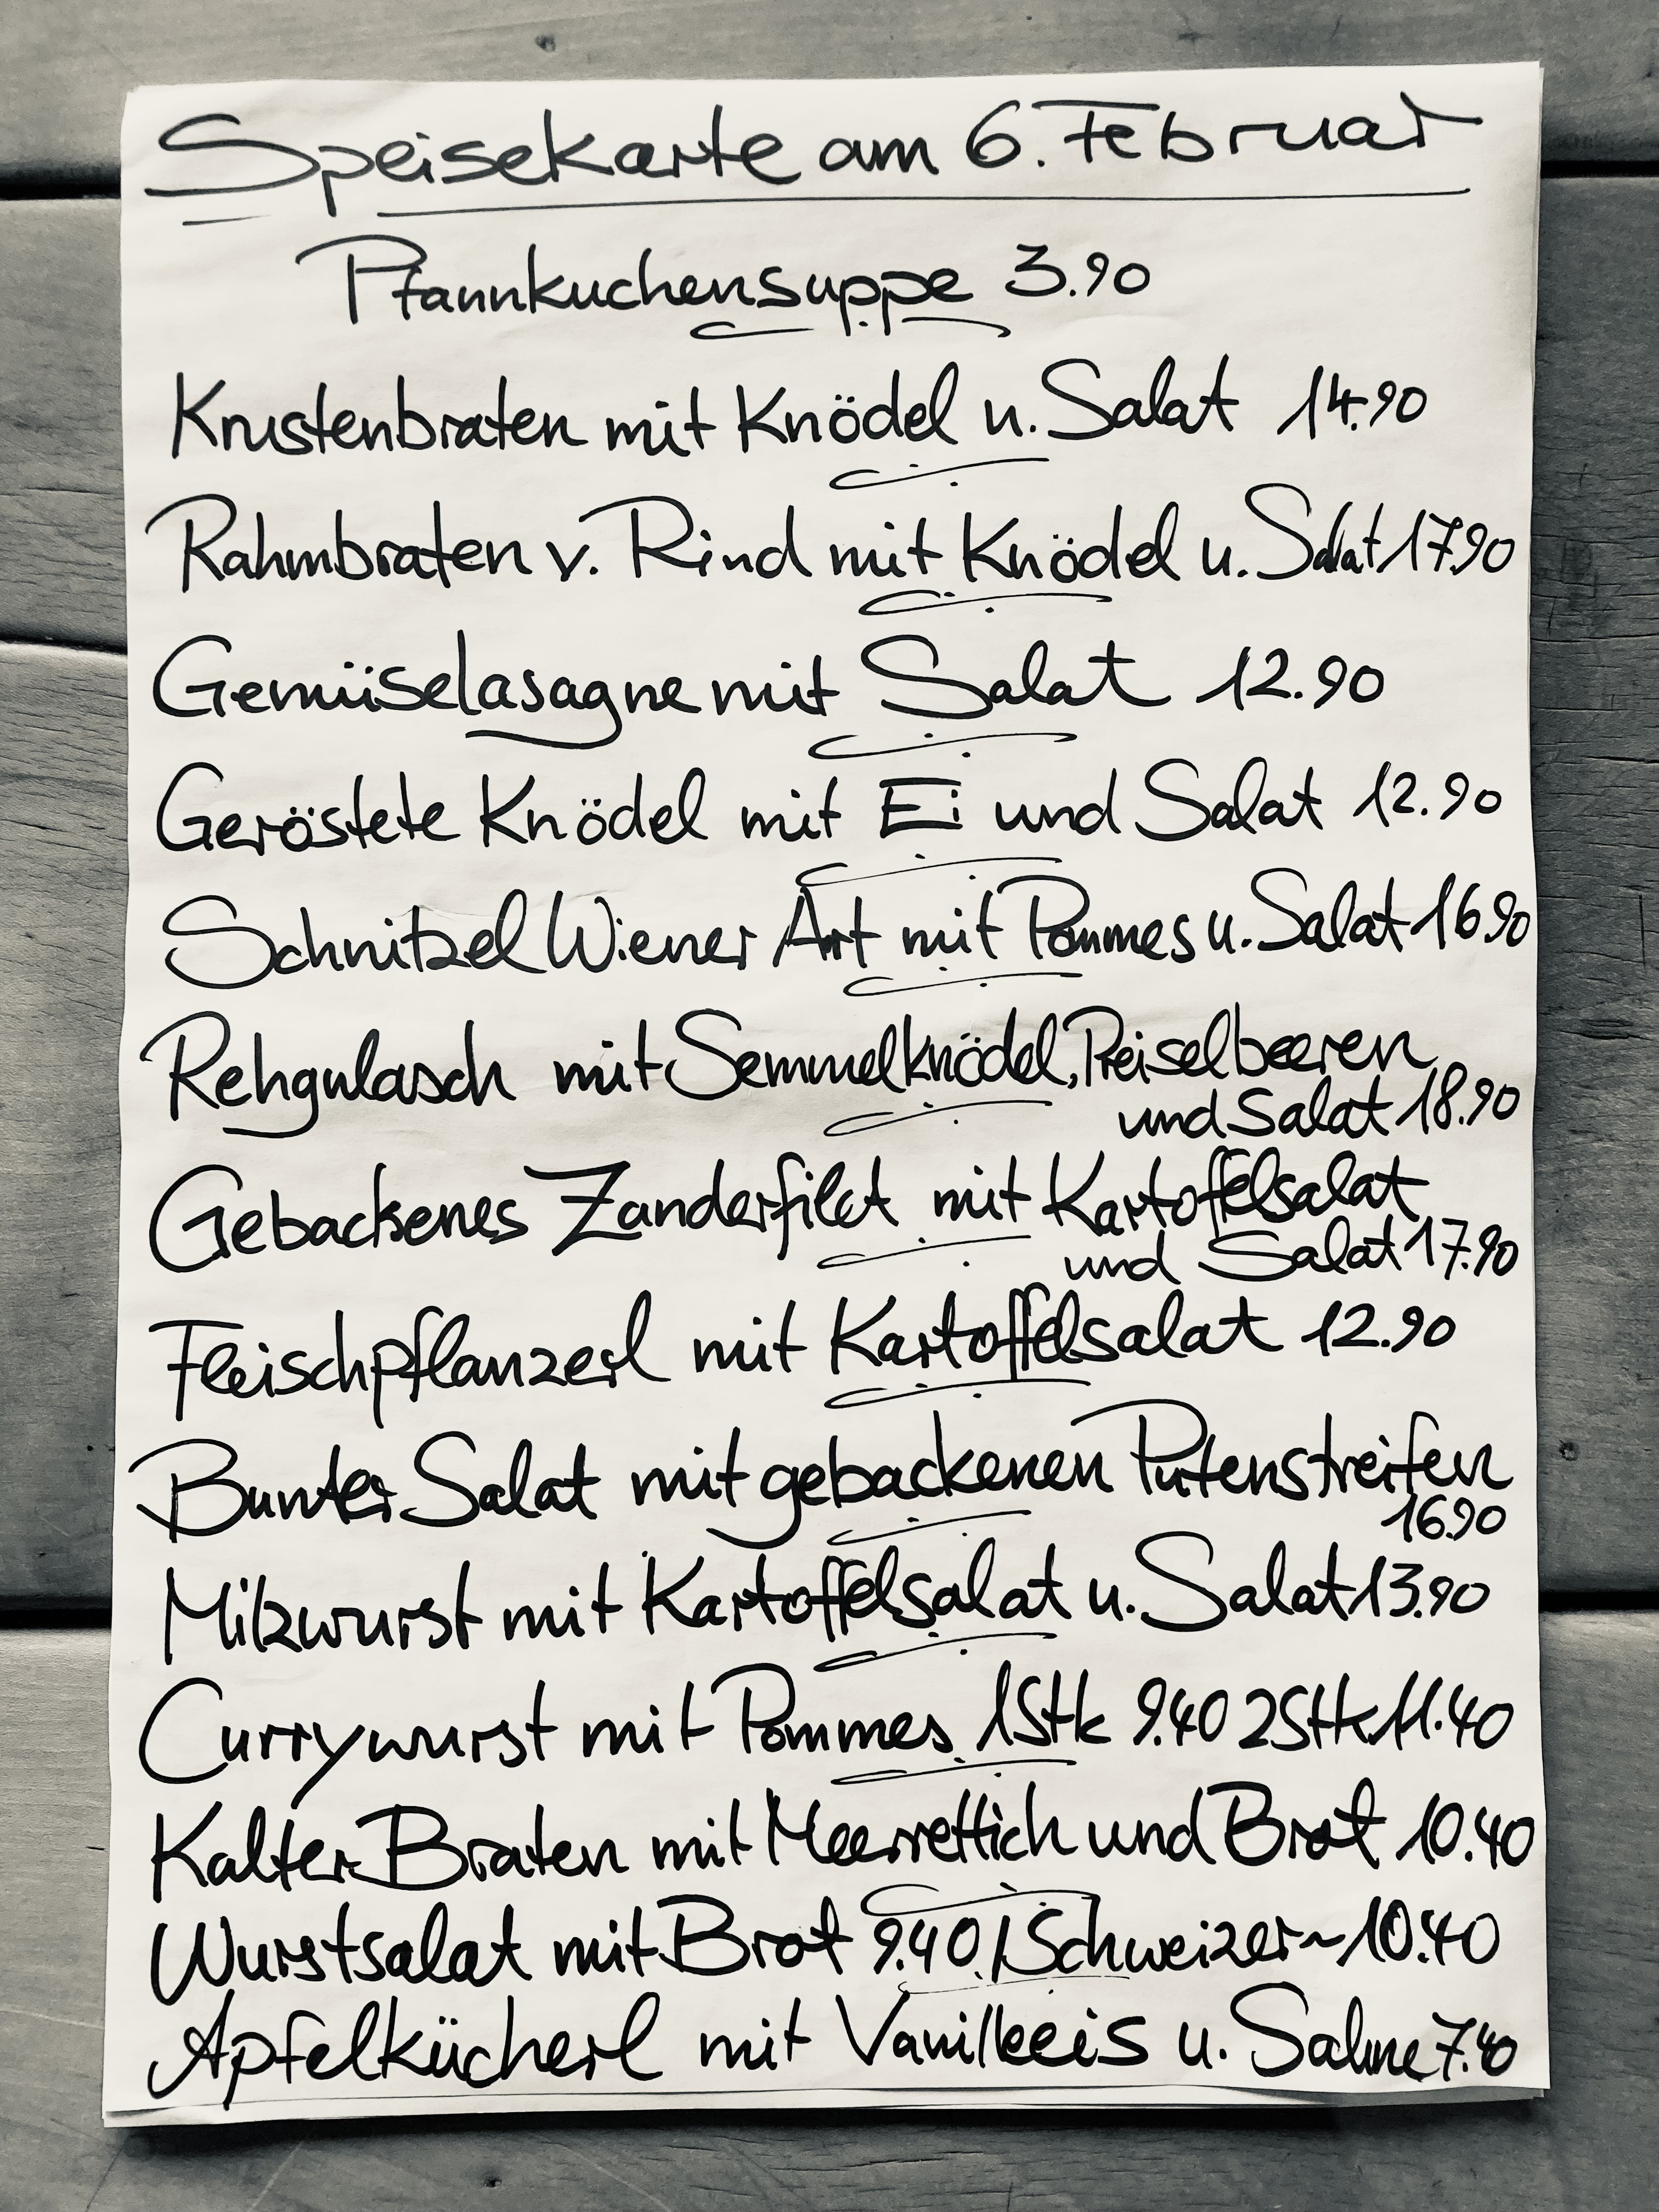 Speisekarte am 6. Februar
Pfannkuchensuppe 3.90
Krustenbraten mit Knödel u. Salat 14.90
Rahmbraten v. Rind mit Knödel u. Salat 17.90
Gemüselasagne mit Salat 12.90
Geröstete Knödel mit Ei und Salat 12.90
Schnitzel Wiener Art mit Pommes u. Salat 16.90
Rehgulasch mit Semmelknödel, Preiselbeeren
und Salat 18.90
Gebackenes Zanderfilet mit Kartoffelsalat
und Salat 17.90
Fleischpflanzerl mit Kartoffelsalat 12.90
Bunter Salat mit gebackenen Putenstreifen
16.90
Milzwurst mit Kartoffelsalat u. Salat 13.90
Currywurst mit Pommes 1Stk 9.40 2Stk 11.40
Kalter Braten mit Meerrettich und Brot 10.40
Wurstsalat mit Brot 9.40 / Schweizer ~ 10.40
Apfelkücherl mit Vanilleeis u. Sahne 7.40